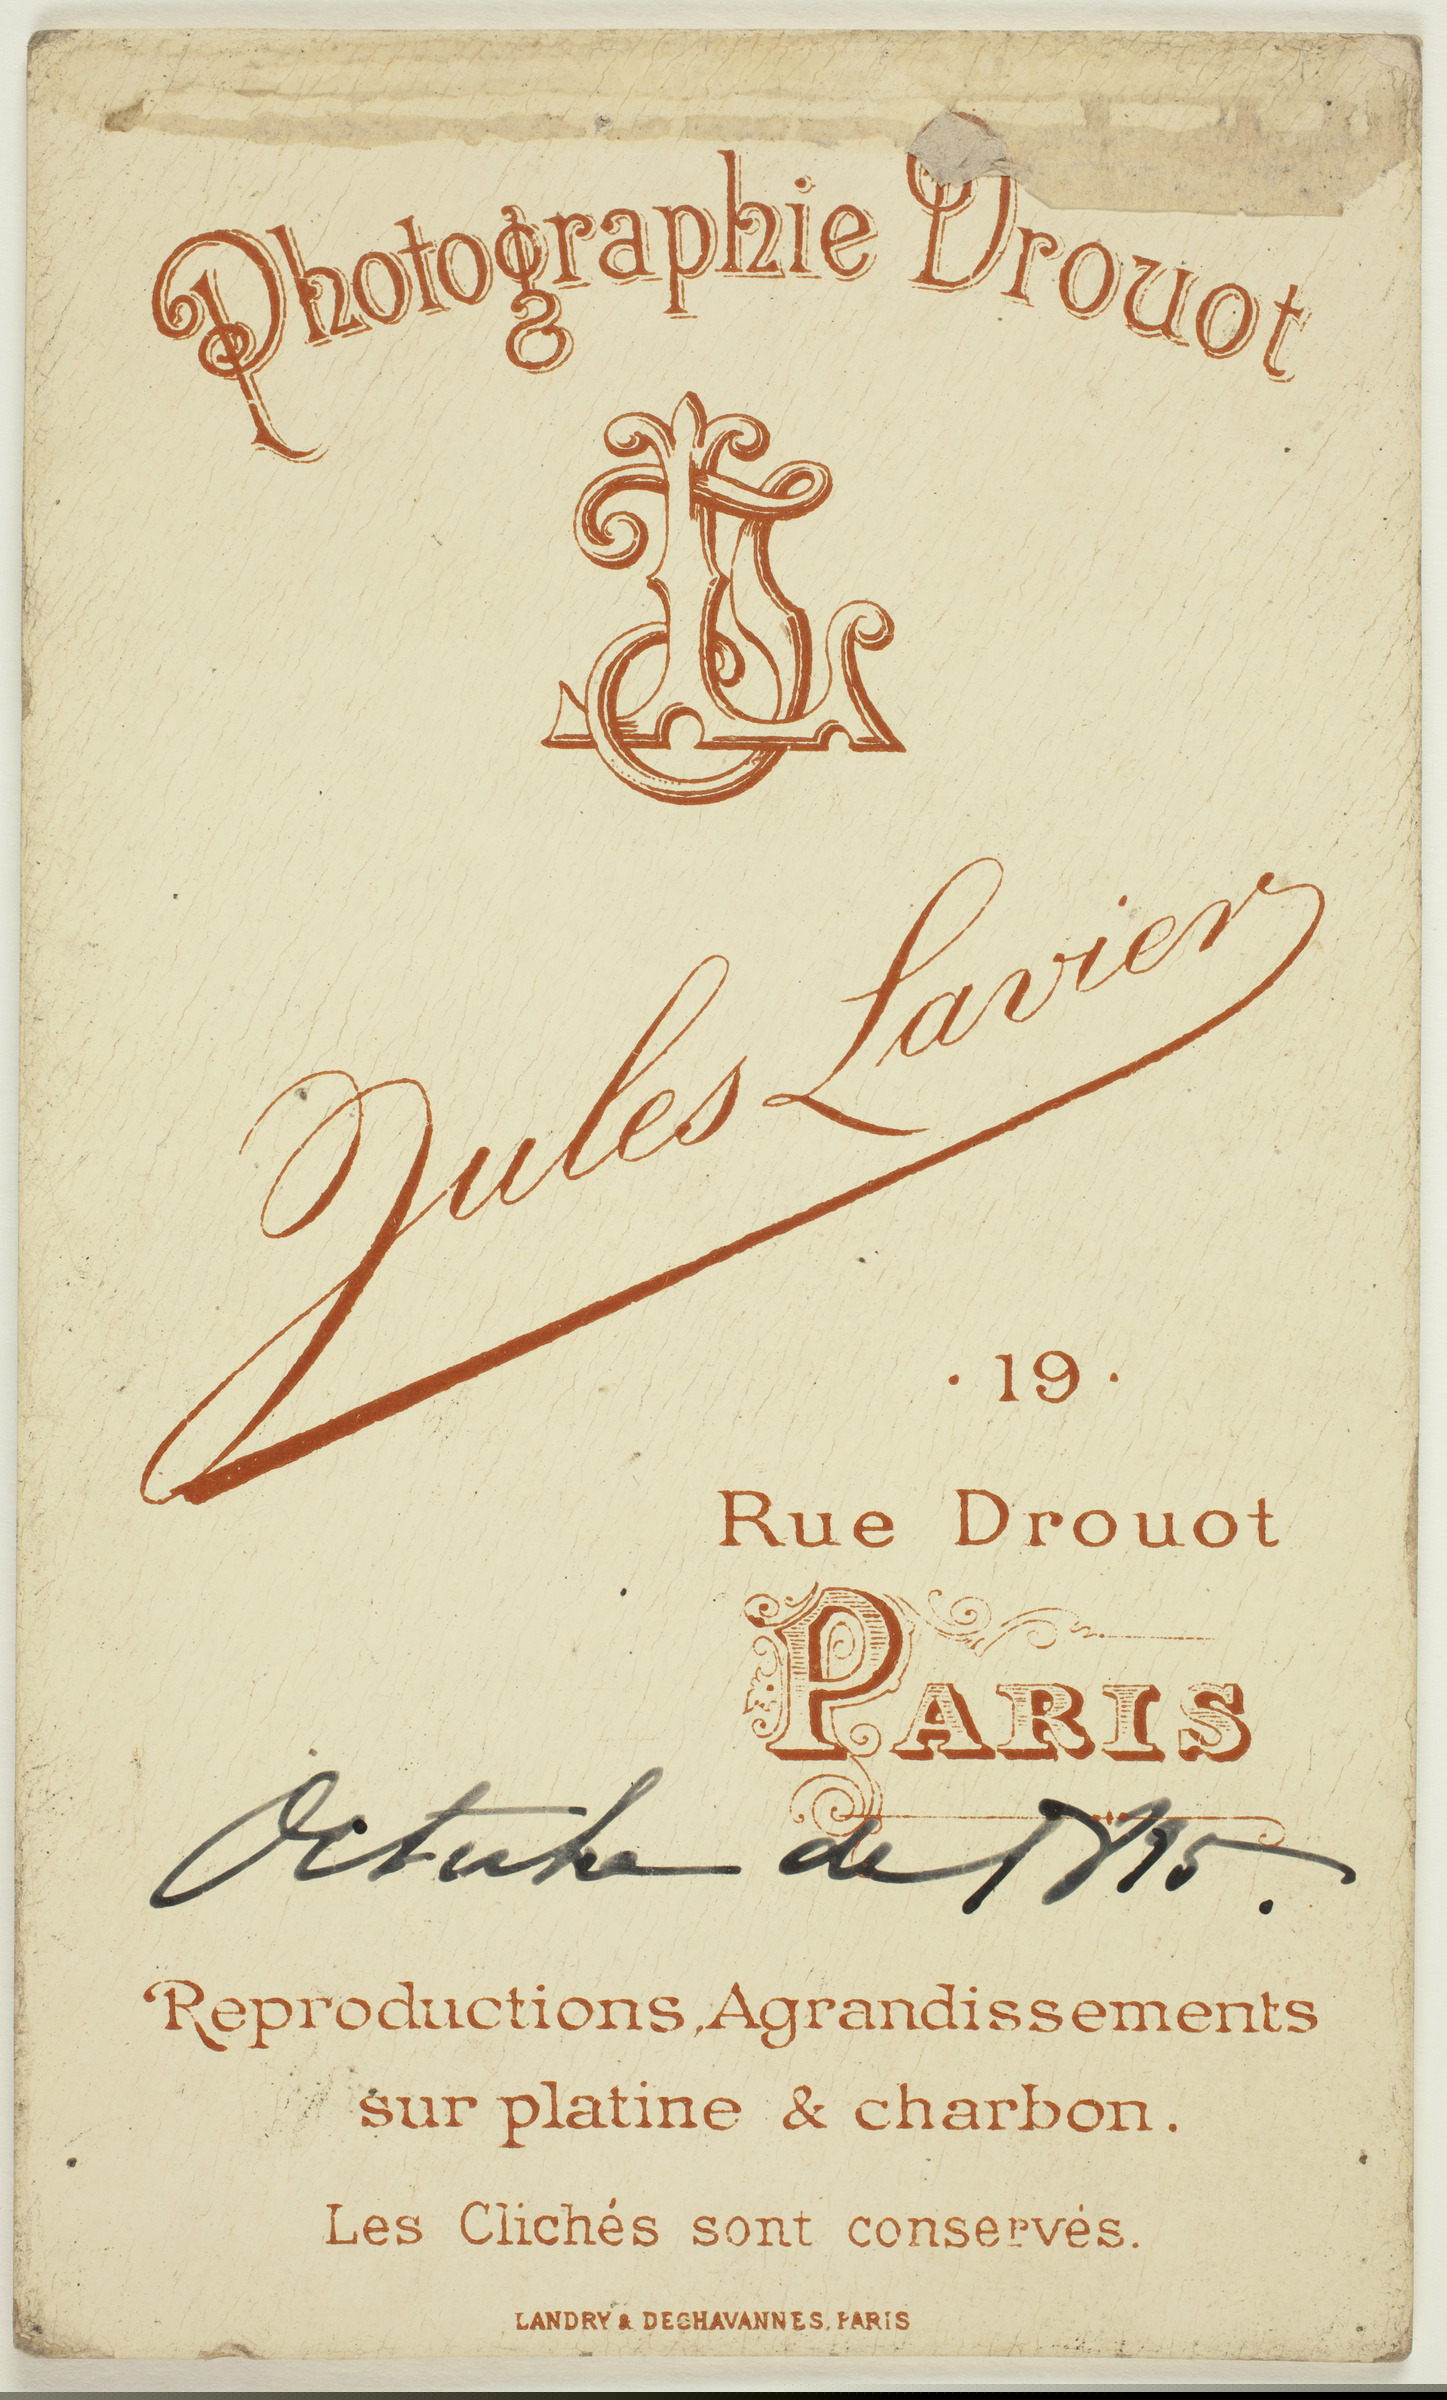 Photographie Drouot
JL
Jules Lavier
· 19 ·
Rue Drouot
PARIS
Octubre de 1895.
Reproductions, Agrandissements
sur platine & charbon.
Les Clichés sont conservés.
LANDRY & DECHAVANNES, PARIS